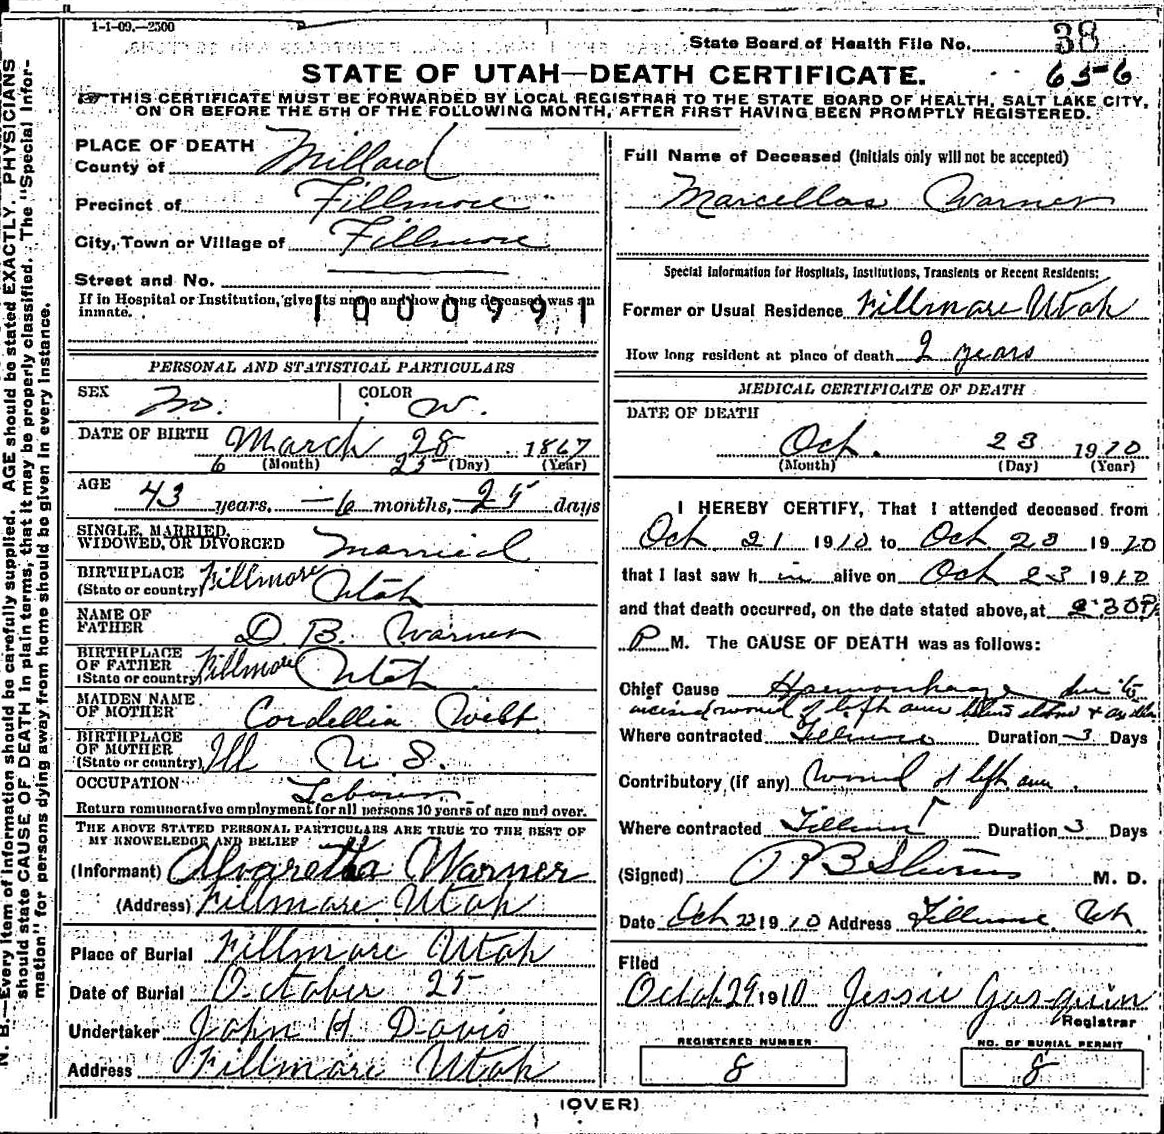 1-1-09.—2500
State Board of Health File No. 38
STATE OF UTAH—DEATH CERTIFICATE. 656
THIS CERTIFICATE MUST BE FORWARDED BY LOCAL REGISTRAR TO THE STATE BOARD OF HEALTH, SALT LAKE CITY,
ON OR BEFORE THE 5TH OF THE FOLLOWING MONTH, AFTER FIRST HAVING BEEN PROMPTLY REGISTERED.
N. B.—Every item of information should be carefully supplied. AGE should be stated EXACTLY. PHYSICIANS
should state CAUSE OF DEATH in plain terms, that it may be properly classified. The "Special Infor-
mation" for persons dying away from home should be given in every instance.
PLACE OF DEATH
County of Millard
Precinct of Fillmore
City, Town or Village of Fillmore
Street and No.
If in Hospital or Institution, give its name and how long deceased was an
inmate.
1000991
PERSONAL AND STATISTICAL PARTICULARS
SEX M. COLOR W.
DATE OF BIRTH March 28 1867
6 (Month) 25 (Day) (Year)
AGE 43 years, 6 months, 25 days
SINGLE, MARRIED,
WIDOWED, OR DIVORCED Married
BIRTHPLACE
(State or country) Fillmore Utah
NAME OF
FATHER D. B. Warner
BIRTHPLACE
OF FATHER
(State or country) Fillmore Utah
MAIDEN NAME
OF MOTHER Cordellia Webb
BIRTHPLACE
OF MOTHER
(State or country) Ill U. S.
OCCUPATION Laborer
Return remunerative employment for all persons 10 years of age and over.
THE ABOVE STATED PERSONAL PARTICULARS ARE TRUE TO THE BEST OF
MY KNOWLEDGE AND BELIEF
(Informant) Alvaretta Warner
(Address) Fillmore Utah
Place of Burial Fillmore Utah
Date of Burial October 25
Undertaker John H Davis
Address Fillmore Utah
Full Name of Deceased (Initials only will not be accepted)
Marcellas Warner
Special Information for Hospitals, Institutions, Transients or Recent Residents:
Former or Usual Residence Fillmore Utah
How long resident at place of death 2 years
MEDICAL CERTIFICATE OF DEATH
DATE OF DEATH
Oct. 23 1910
(Month) (Day) (Year)
I HEREBY CERTIFY, That I attended deceased from
Oct 21 1910 to Oct 23 1910
that I last saw h im alive on Oct 23 1910
and that death occurred, on the date stated above, at 2:30 P
P M. The CAUSE OF DEATH was as follows:
Chief Cause Haemorrhage due to
incised wound of left arm
Where contracted Fillmore Duration 3 Days
Contributory (if any) Wound of left arm
Where contracted Fillmore Duration 3 Days
(Signed) M. D.
Date Oct 23 1910 Address Fillmore Utah
Filed
Octob 29 1910 Jessie Gasquin
Registrar
REGISTERED NUMBER
8
NO. OF BURIAL PERMIT
8
(OVER)